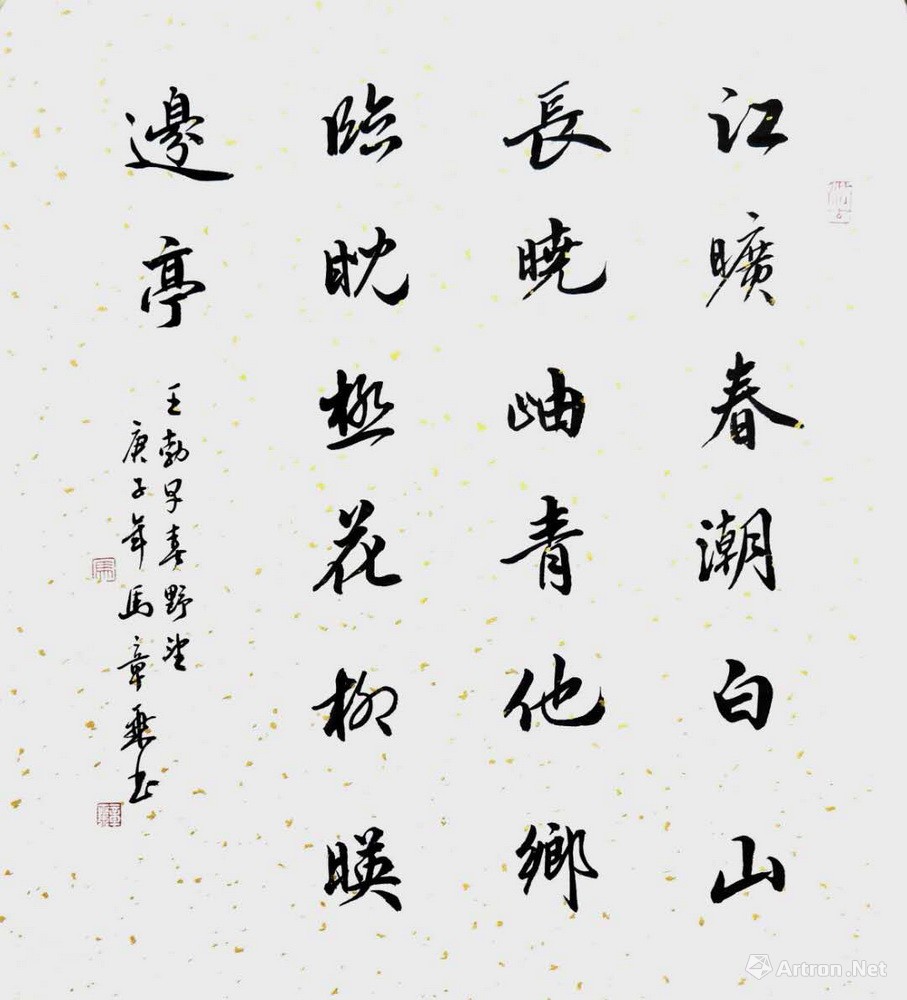 江曠春潮白山
長曉岫青他鄉
臨眺極花柳暎
邊亭
王勃早春野望
庚子年馬章乘书
Artron.Net